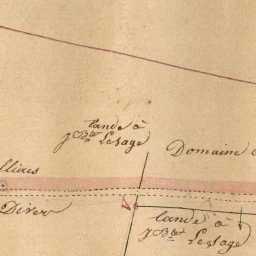 lande à
J Bte Lesage
Domaine d
llières
Diver
lande à
J Bte Lesage